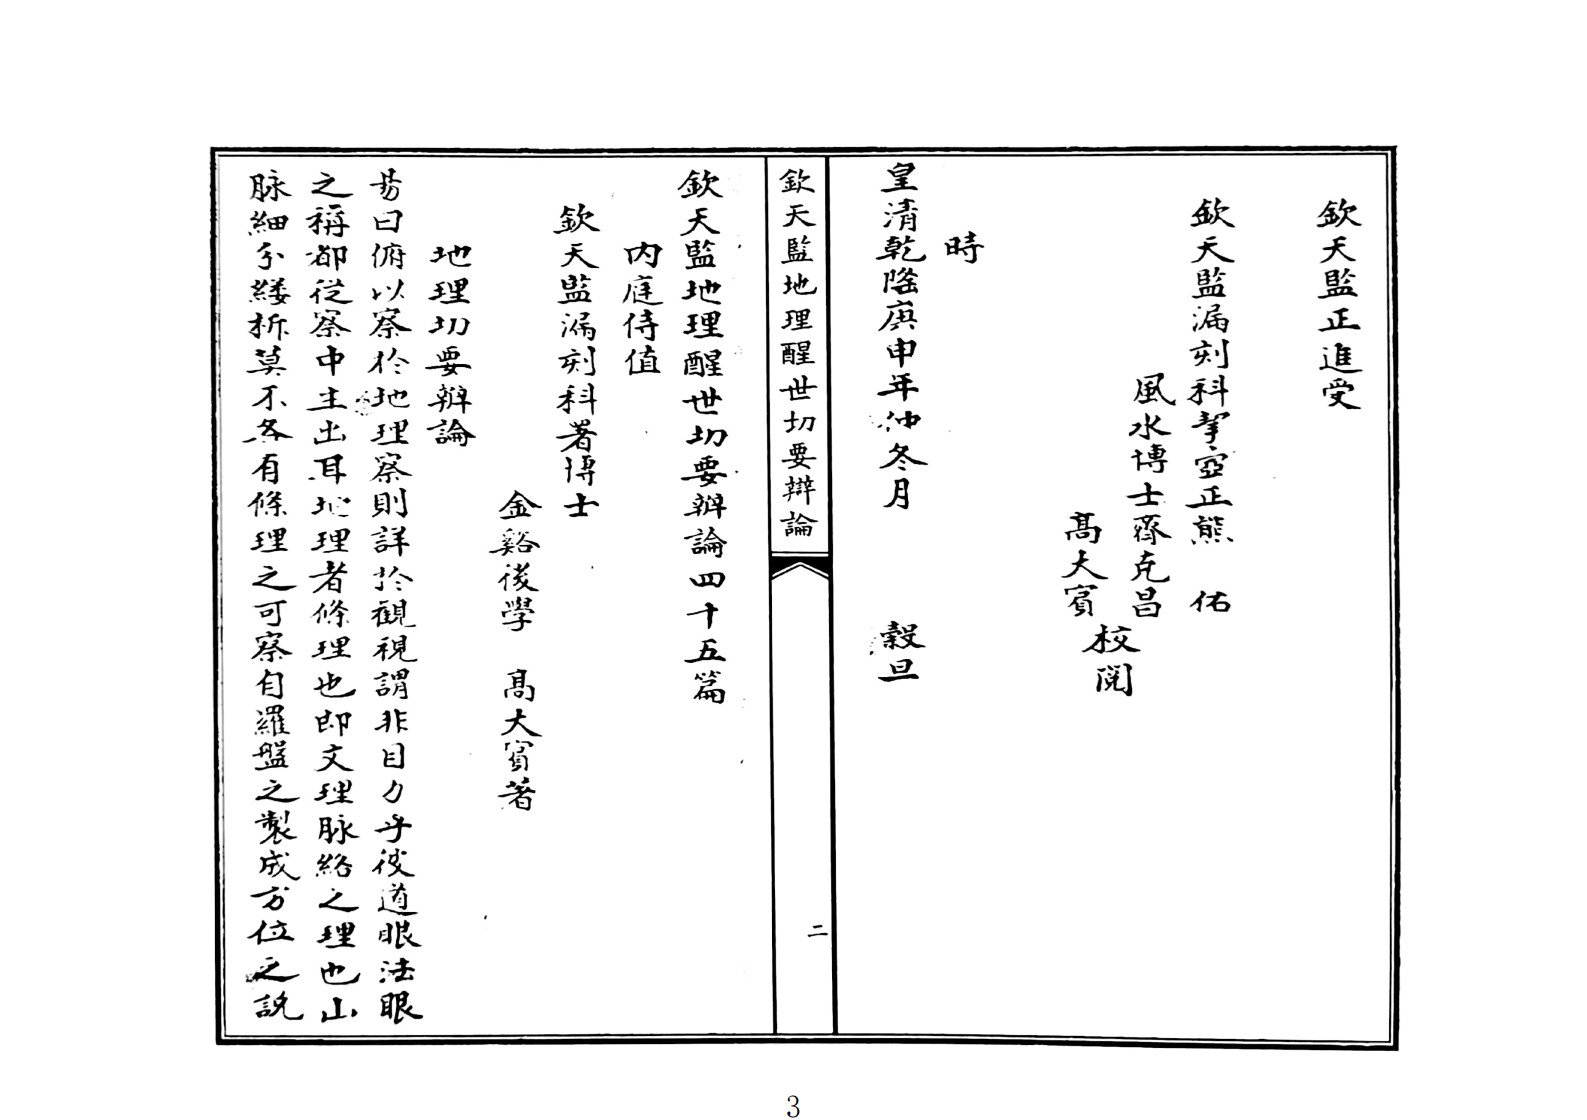 欽天監正進受
欽天監漏刻科挈壺正熊　佑
風水博士齊克昌
高大賓
校閱
時
皇清乾隆庚申年仲冬月　穀旦
欽天監地理醒世切要辯論　二
欽天監地理醒世切要辯論四十五篇
内庭侍值
欽天監漏刻科著博士
金谿後學　高大賓著
地理切要辯論
昜曰俯以察於地理察則詳於觀視謂非目力乎彼道眼法眼
之稱都從察中主出耳地理者條理也即文理脉絡之理也山
脉細分縷柝莫不各有條理之可察自羅盤之製成方位之説
3